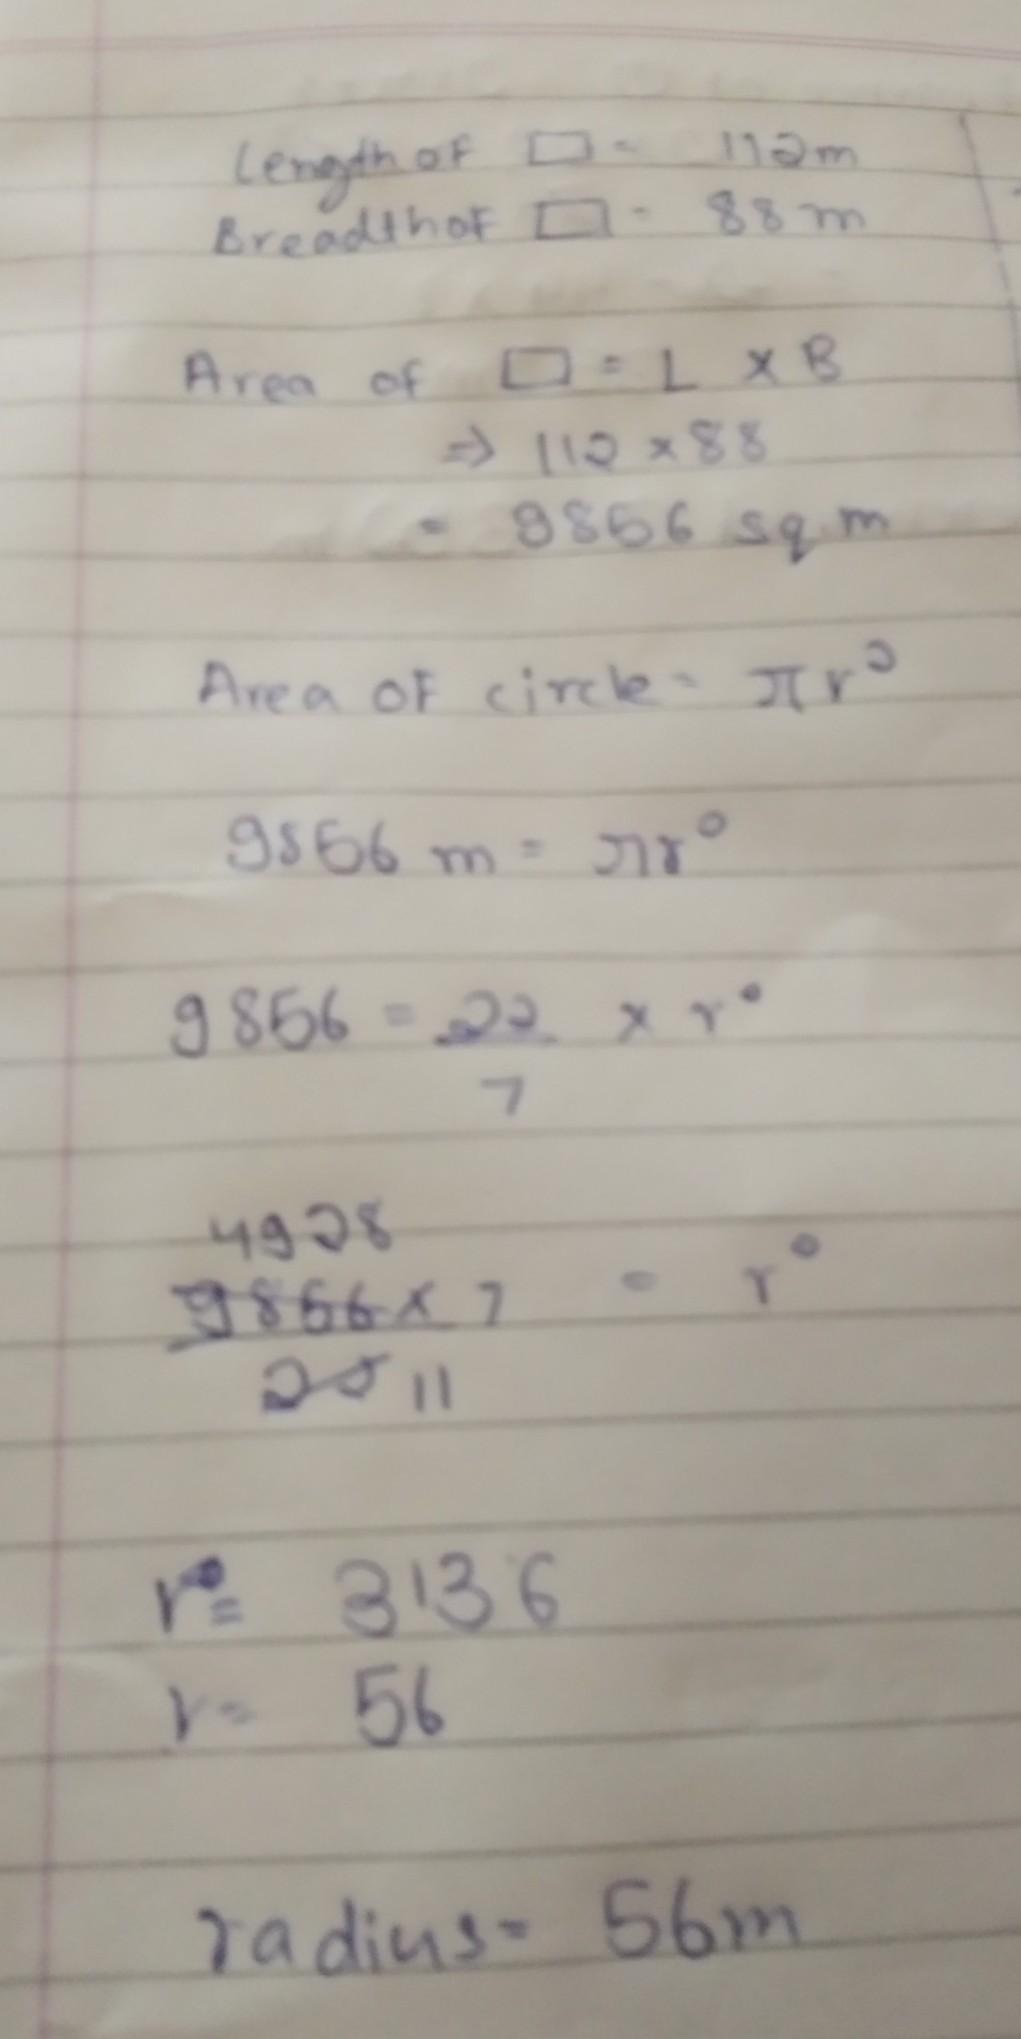 Length of ▭ = 112m
Breadth of ▭ = 88 m
Area of ▭ = L × B
⇒ 112 × 88
= 9856 sq m
Area of circle = πr²
9856 m = πr²
9856 = 22 × r²
7
4928
9856 × 7 = r²
22 11
r² = 3136
r = 56
radius = 56m